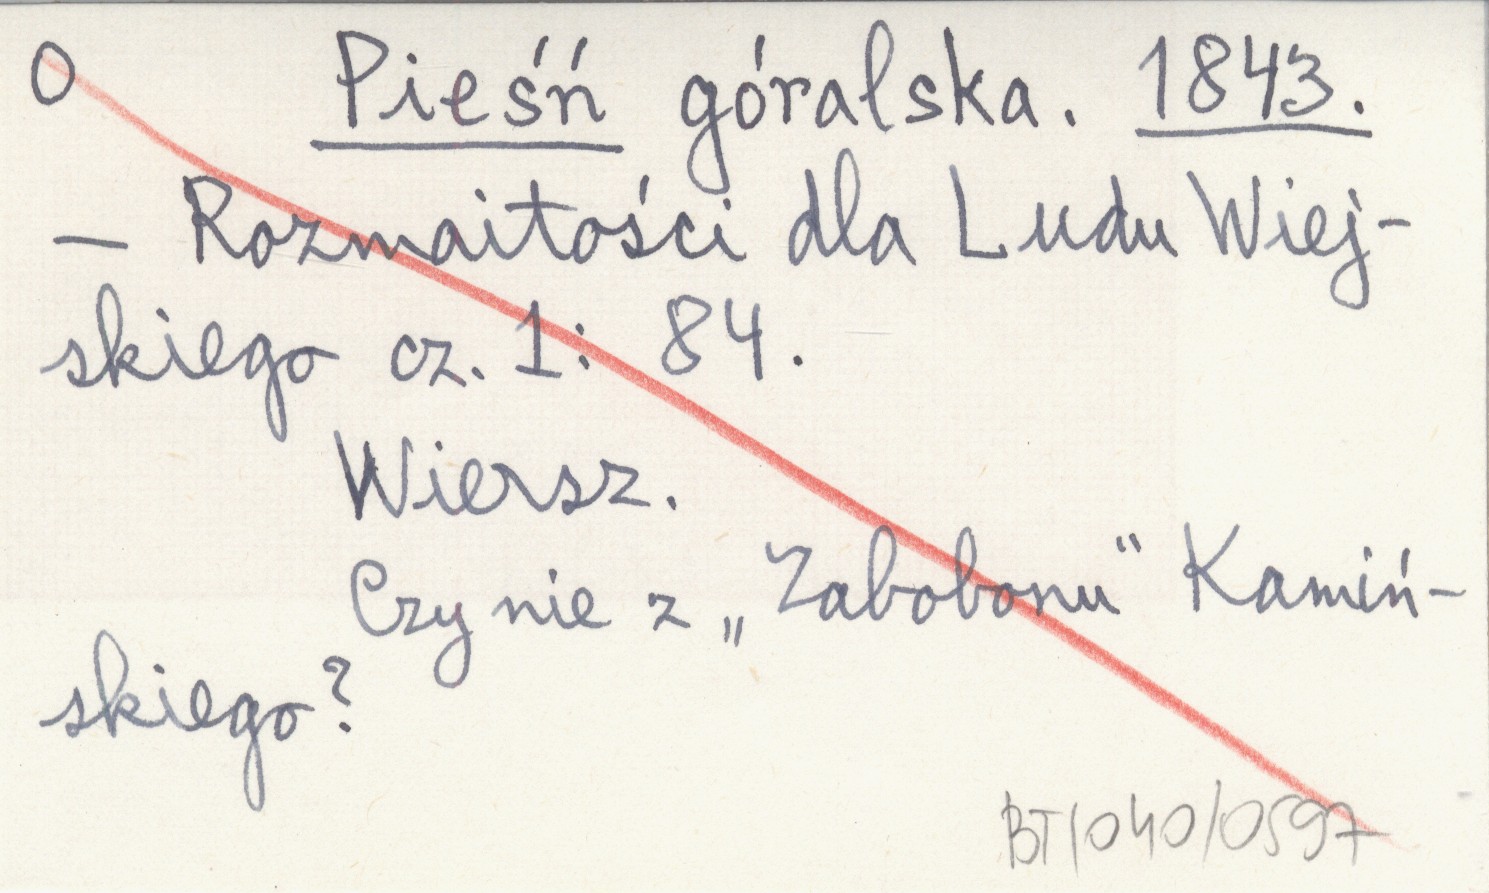 O Pieśń góralska. 1843.
— Rozmaitości dla Ludu Wiej-
skiego cz. 1: 84.
Wiersz.
Czy nie z „Zabobonu" Kamiń-
skiego?
BT/040/0597